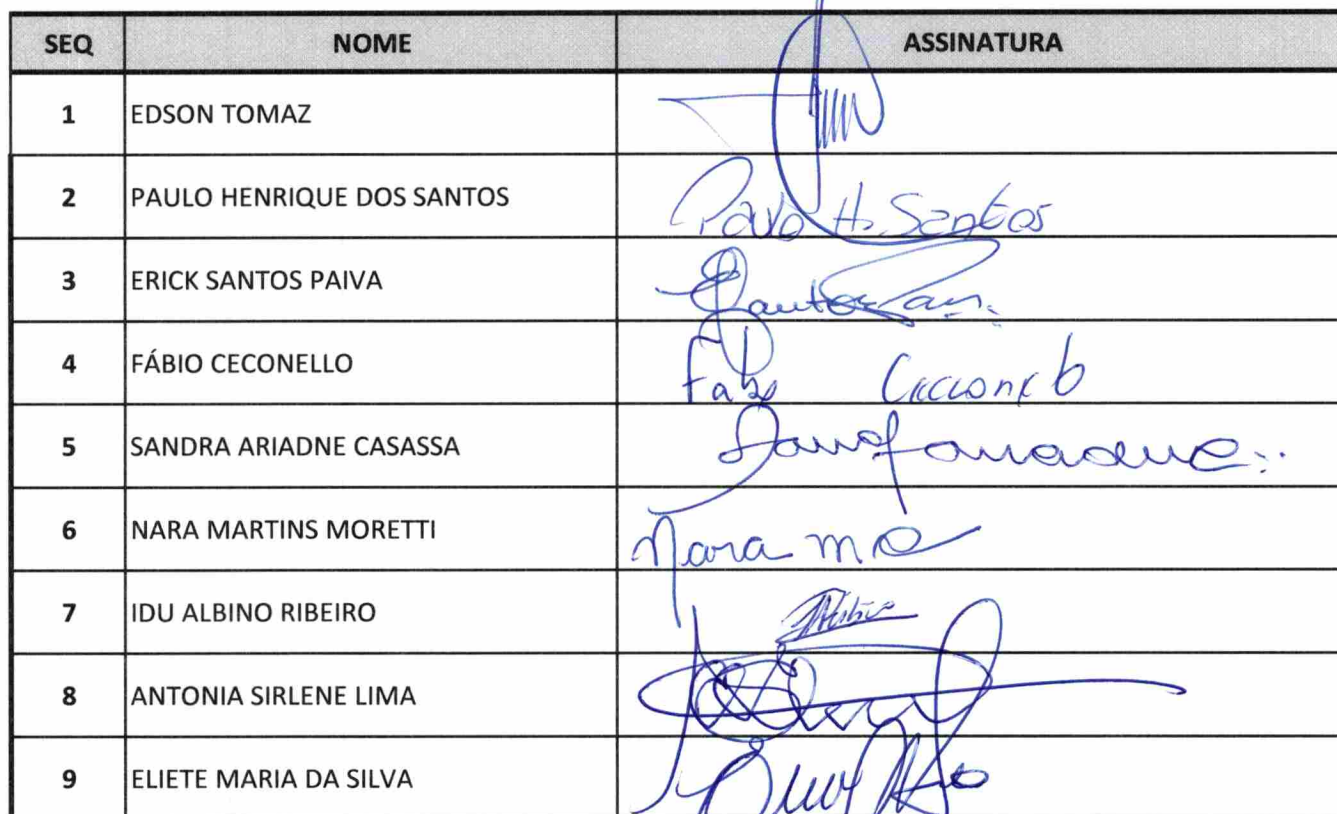 SEQ NOME ASSINATURA
1 EDSON TOMAZ
2 PAULO HENRIQUE DOS SANTOS Paulo H. Santos
3 ERICK SANTOS PAIVA
4 FÁBIO CECONELLO Fabio
5 SANDRA ARIADNE CASASSA
6 NARA MARTINS MORETTI Nara m
7 IDU ALBINO RIBEIRO
8 ANTONIA SIRLENE LIMA
9 ELIETE MARIA DA SILVA